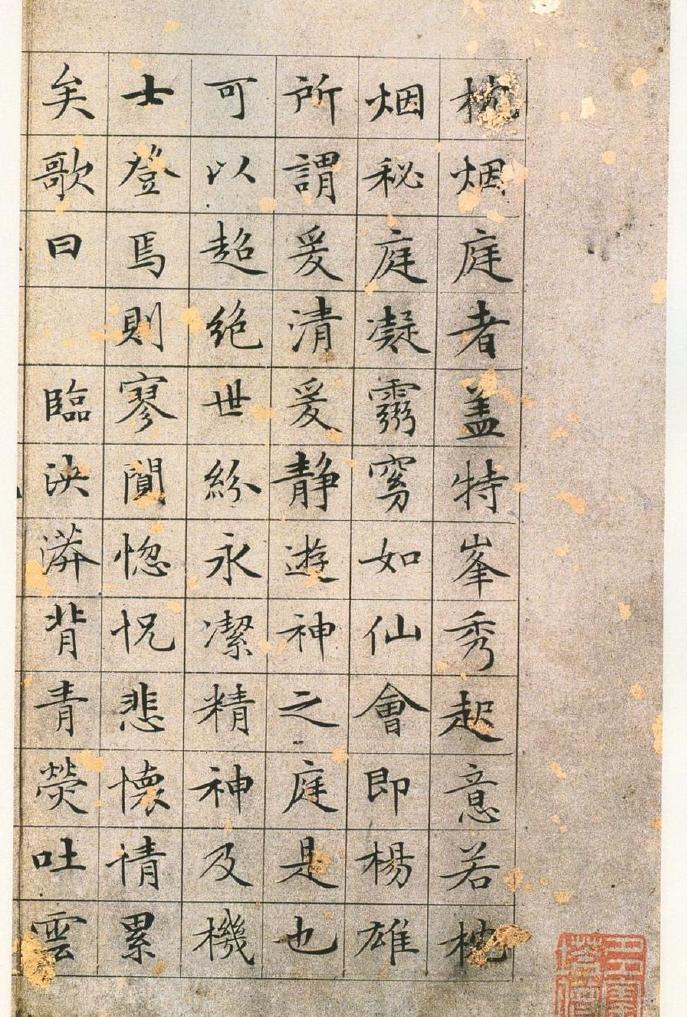 枕烟庭者盖特峯秀起意若枕
烟秘庭凝霛窅如仙會即楊雄
所謂爰清爰静遊神之庭是也
可以超絶世紛永潔精神及機
士登焉則寥閴惚怳悲懷情累
矣歌曰 臨泱漭背青熒吐雲